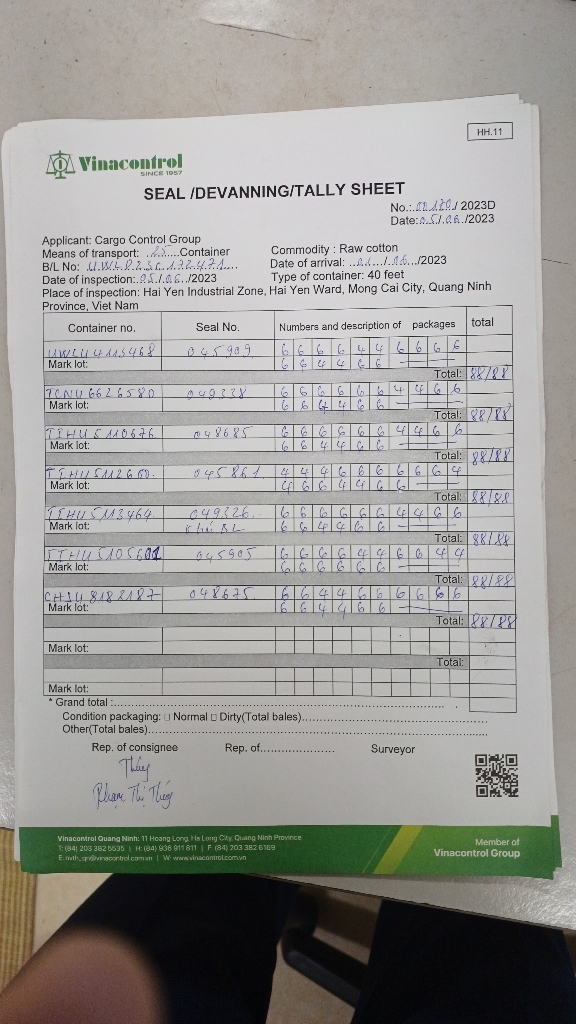 HH.11
Vinacontrol
SINCE 1957
SEAL /DEVANNING/TALLY SHEET
No.: 00120 / 2023D
Date: 05/06 /2023
Applicant: Cargo Control Group
Means of transport: 25 Container
Commodity : Raw cotton
B/L No:
Date of arrival: 01 / 06 /2023
Date of inspection: 05/06 /2023
Type of container: 40 feet
Place of inspection: Hai Yen Industrial Zone, Hai Yen Ward, Mong Cai City, Quang Ninh
Province, Viet Nam
Container no. Seal No. Numbers and description of packages total
UWLU4113468 045909 6 6 6 6 4 4 6 6 6 6
Mark lot: 6 6 4 4 6 6
Total: 88/88
TCNU6626580 049338 6 6 6 6 6 6 4 4 6 6
Mark lot: 6 6 4 4 6 6
Total: 88/88
TTHU5110676 048685 6 6 6 6 6 6 4 4 6 6
Mark lot: 6 6 4 4 6 6
Total: 88/88
045861 4 4 4 6 6 6 6 6 6 4
Mark lot: 4 6 6 4 4 6 6
Total: 88/88
TTHU5113464 049326 6 6 6 6 6 6 4 4 6 6
Mark lot: 6 6 4 4 6 6
Total: 88/88
045905 6 6 6 6 4 4 6 6 4 4
Mark lot: 6 6 6 6 6 6
Total: 88/88
CHSU8182187 048675 6 6 4 4 6 6 6 6 6 6
Mark lot: 6 6 4 4 6 6
Total: 88/88
Mark lot:
Total:
Mark lot:
* Grand total :
Condition packaging: □ Normal □ Dirty(Total bales)
Other(Total bales)
Rep. of consignee Rep. of Surveyor
Thúy
Phạm Thị Thúy
Vinacontrol Quang Ninh: 11 Hoang Long, Ha Long City, Quang Ninh Province
T: (84) 203 382 5535 | H: (84) 936 911 811 | F: (84) 203 382 6169
E: nvth_qn@vinacontrol.com.vn | W: www.vinacontrol.com.vn
Member of
Vinacontrol Group